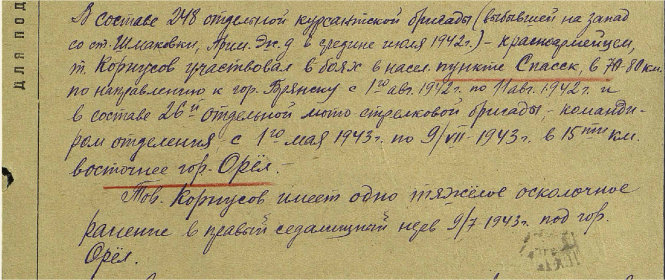 для под
В составе 248 отдельной курсантской бригады (выбывшей на запад
со ст. Шмаковки, Прим. Ж. Д в средине июля 1942г.) - красноармейцем,
т. Корпусов участвовал в боях в насел. пункте Спасск, в 70-80 км.
по направлению к гор. Брянску с 1го авг. 1942г. по 11 авг. 1942г. и
в составе 26й отдельной мото-стрелковой бригады, - команди-
ром отделения, с 1го мая 1943г. по 9/VII-1943г. в 15ти км.
восточнее гор. Орёл. -
Тов. Корпусов имеет одно тяжёлое осколочное
ранение в правый седалищный нерв 9/7 1943г. под гор.
Орёл.